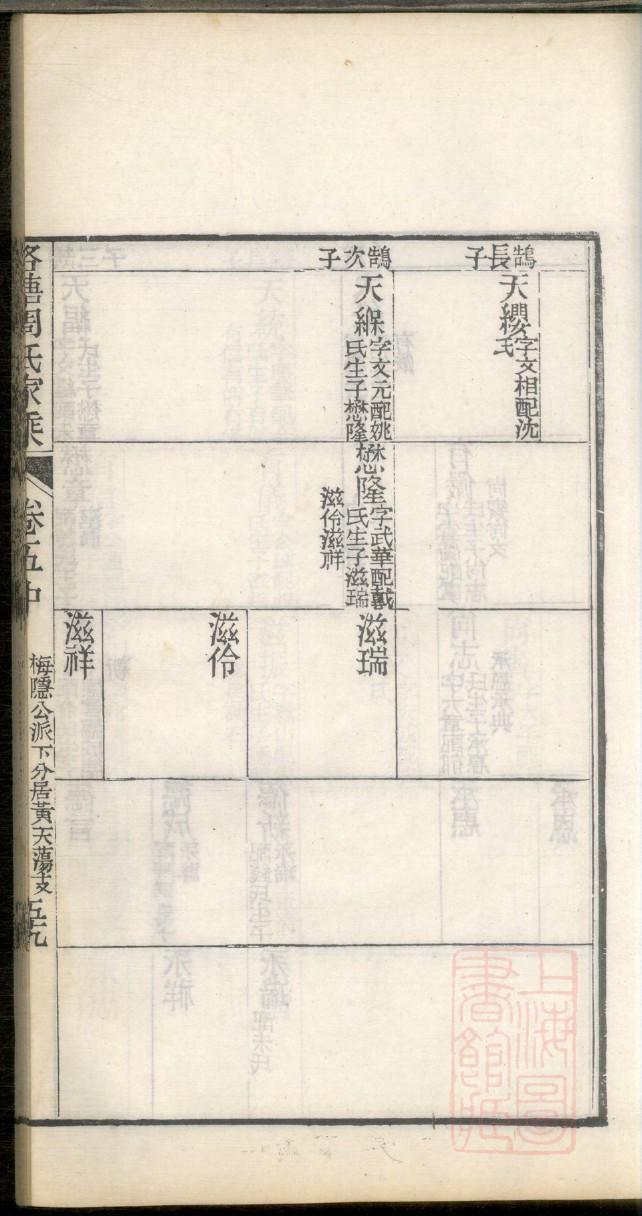 鵠長子
天纓字文相配沈
氏
鵠次子
天緥字文元配姚
氏生子懋隆
懋隆字武華配戴
氏生子滋瑞
滋伶滋祥
滋瑞
滋伶
滋祥
周氏家乘
卷五中
梅隱公派下分居黃天蕩支
五九
上海圖
書館藏